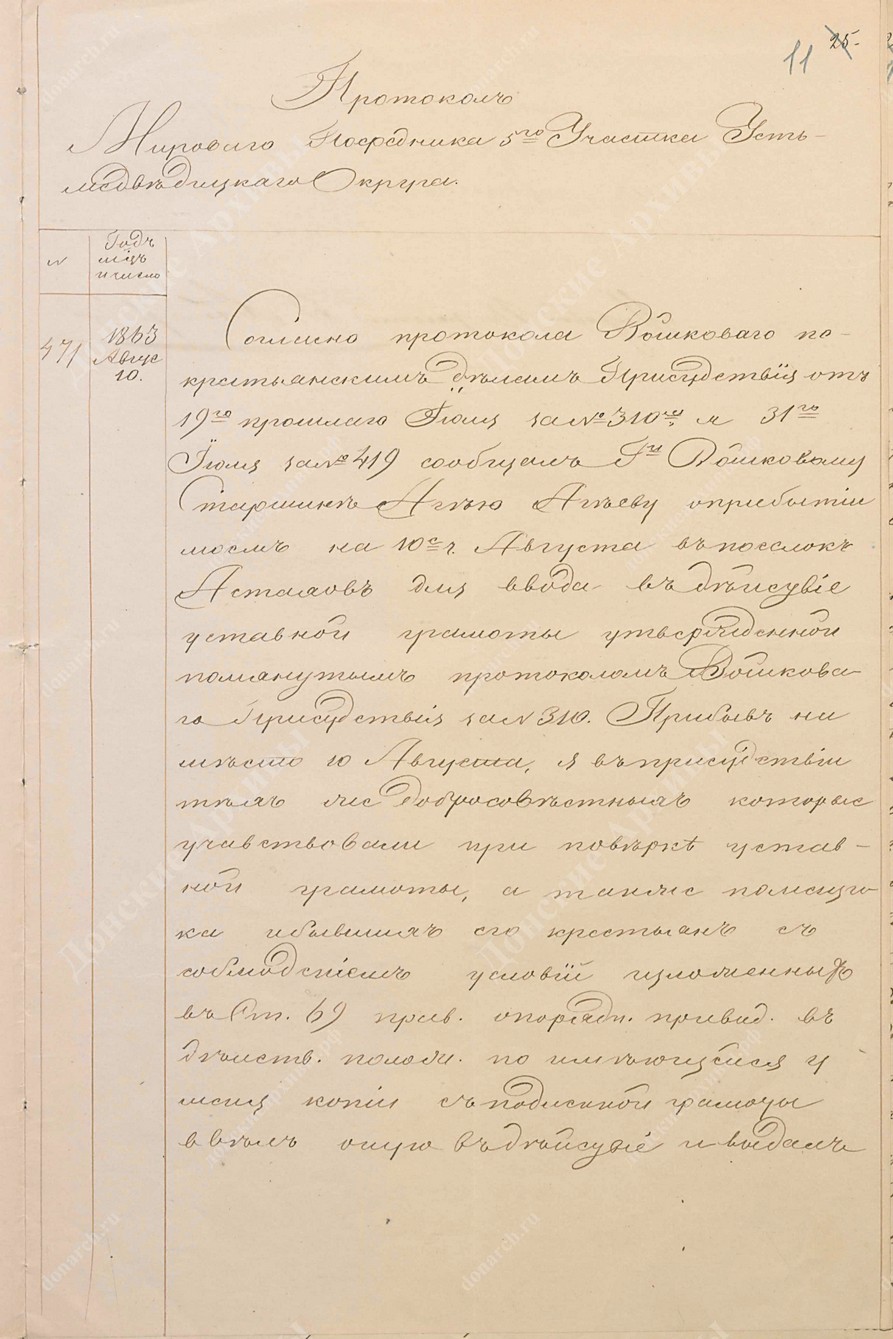 11 25.
Протоколъ
Мироваго Посредника 5го Участка Усть-
медвѣдицкаго Округа.
№
Годъ
мцъ
и число
471
1863
Авгус
10.
Согласно протокола Войсковаго по-
крестьянскимъ дѣламъ Присудствія отъ
19го прошлаго Іюля за № 310м и 31го
Іюля за № 419 сообщалъ Гну Войсковому
Старшинѣ Агѣю Агѣеву оприбытіи
моемъ на 10е ч. Августа въ поселокъ
Астаховъ для ввода въ дѣйсувіе
уставной грамоты утвержденной
помянутымъ протоколомъ Войскова-
го Присудствія за № 310. Прибывъ на
мѣсто 10 Августа, я въ присудствіи
тѣхъ же добросовѣстныхъ которые
учавствовали при повѣркѣ устав-
ной грамоты, а также помѣщи-
ка ибывшихъ его крестьянъ съ
соблюденіемъ условій изложенныхъ
въ Ст. 69 прав. опорядк. привед. въ
дѣйств. полож. по имѣющейся у
меня копіи съ подлинной грамоты
ввелъ оную въ дѣйсувіе и выдалъ
Донские Архивы
donarch.ru